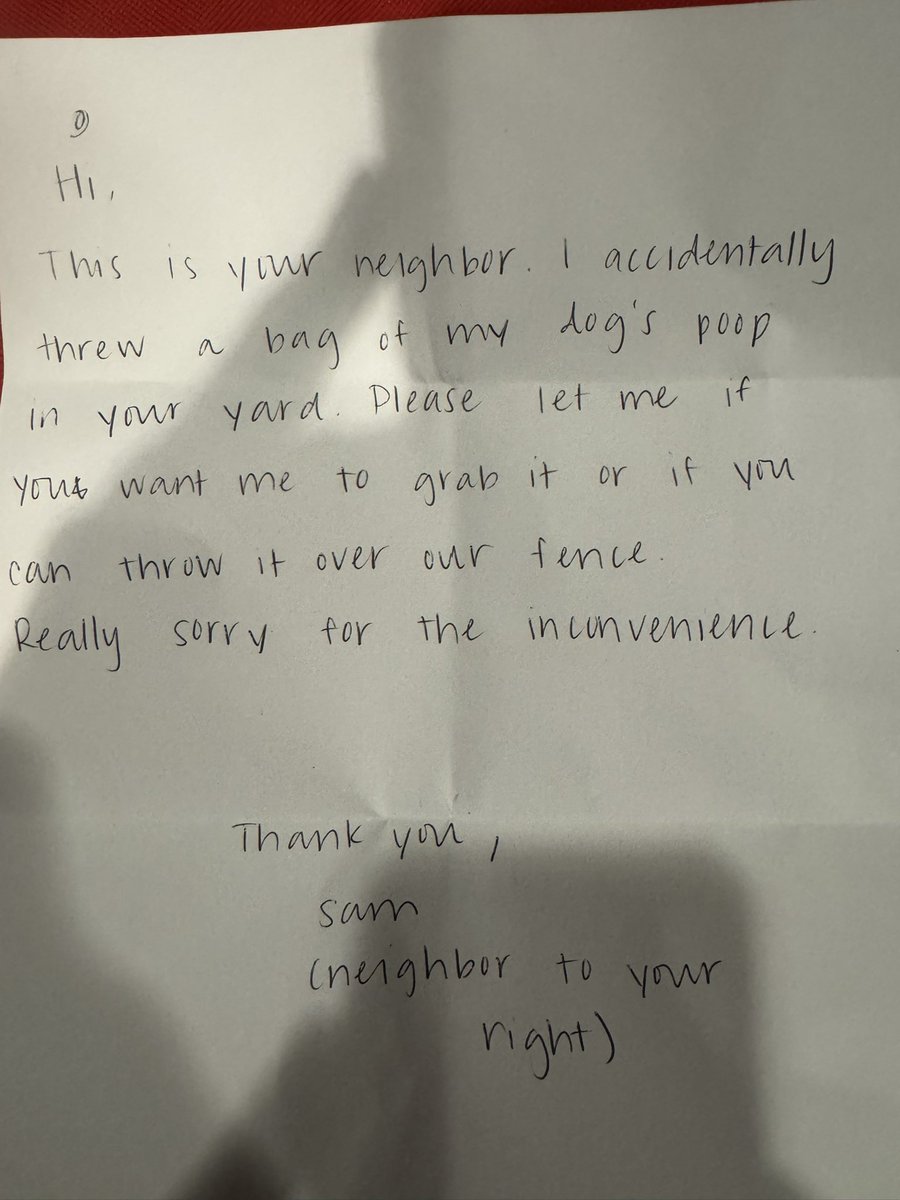 Hi,
This is your neighbor. I accidentally
threw a bag of my dog's poop
in your yard. Please let me if
you want me to grab it or if you
can throw it over our fence.
Really sorry for the inconvenience.
Thank you,
sam
(neighbor to your
right)